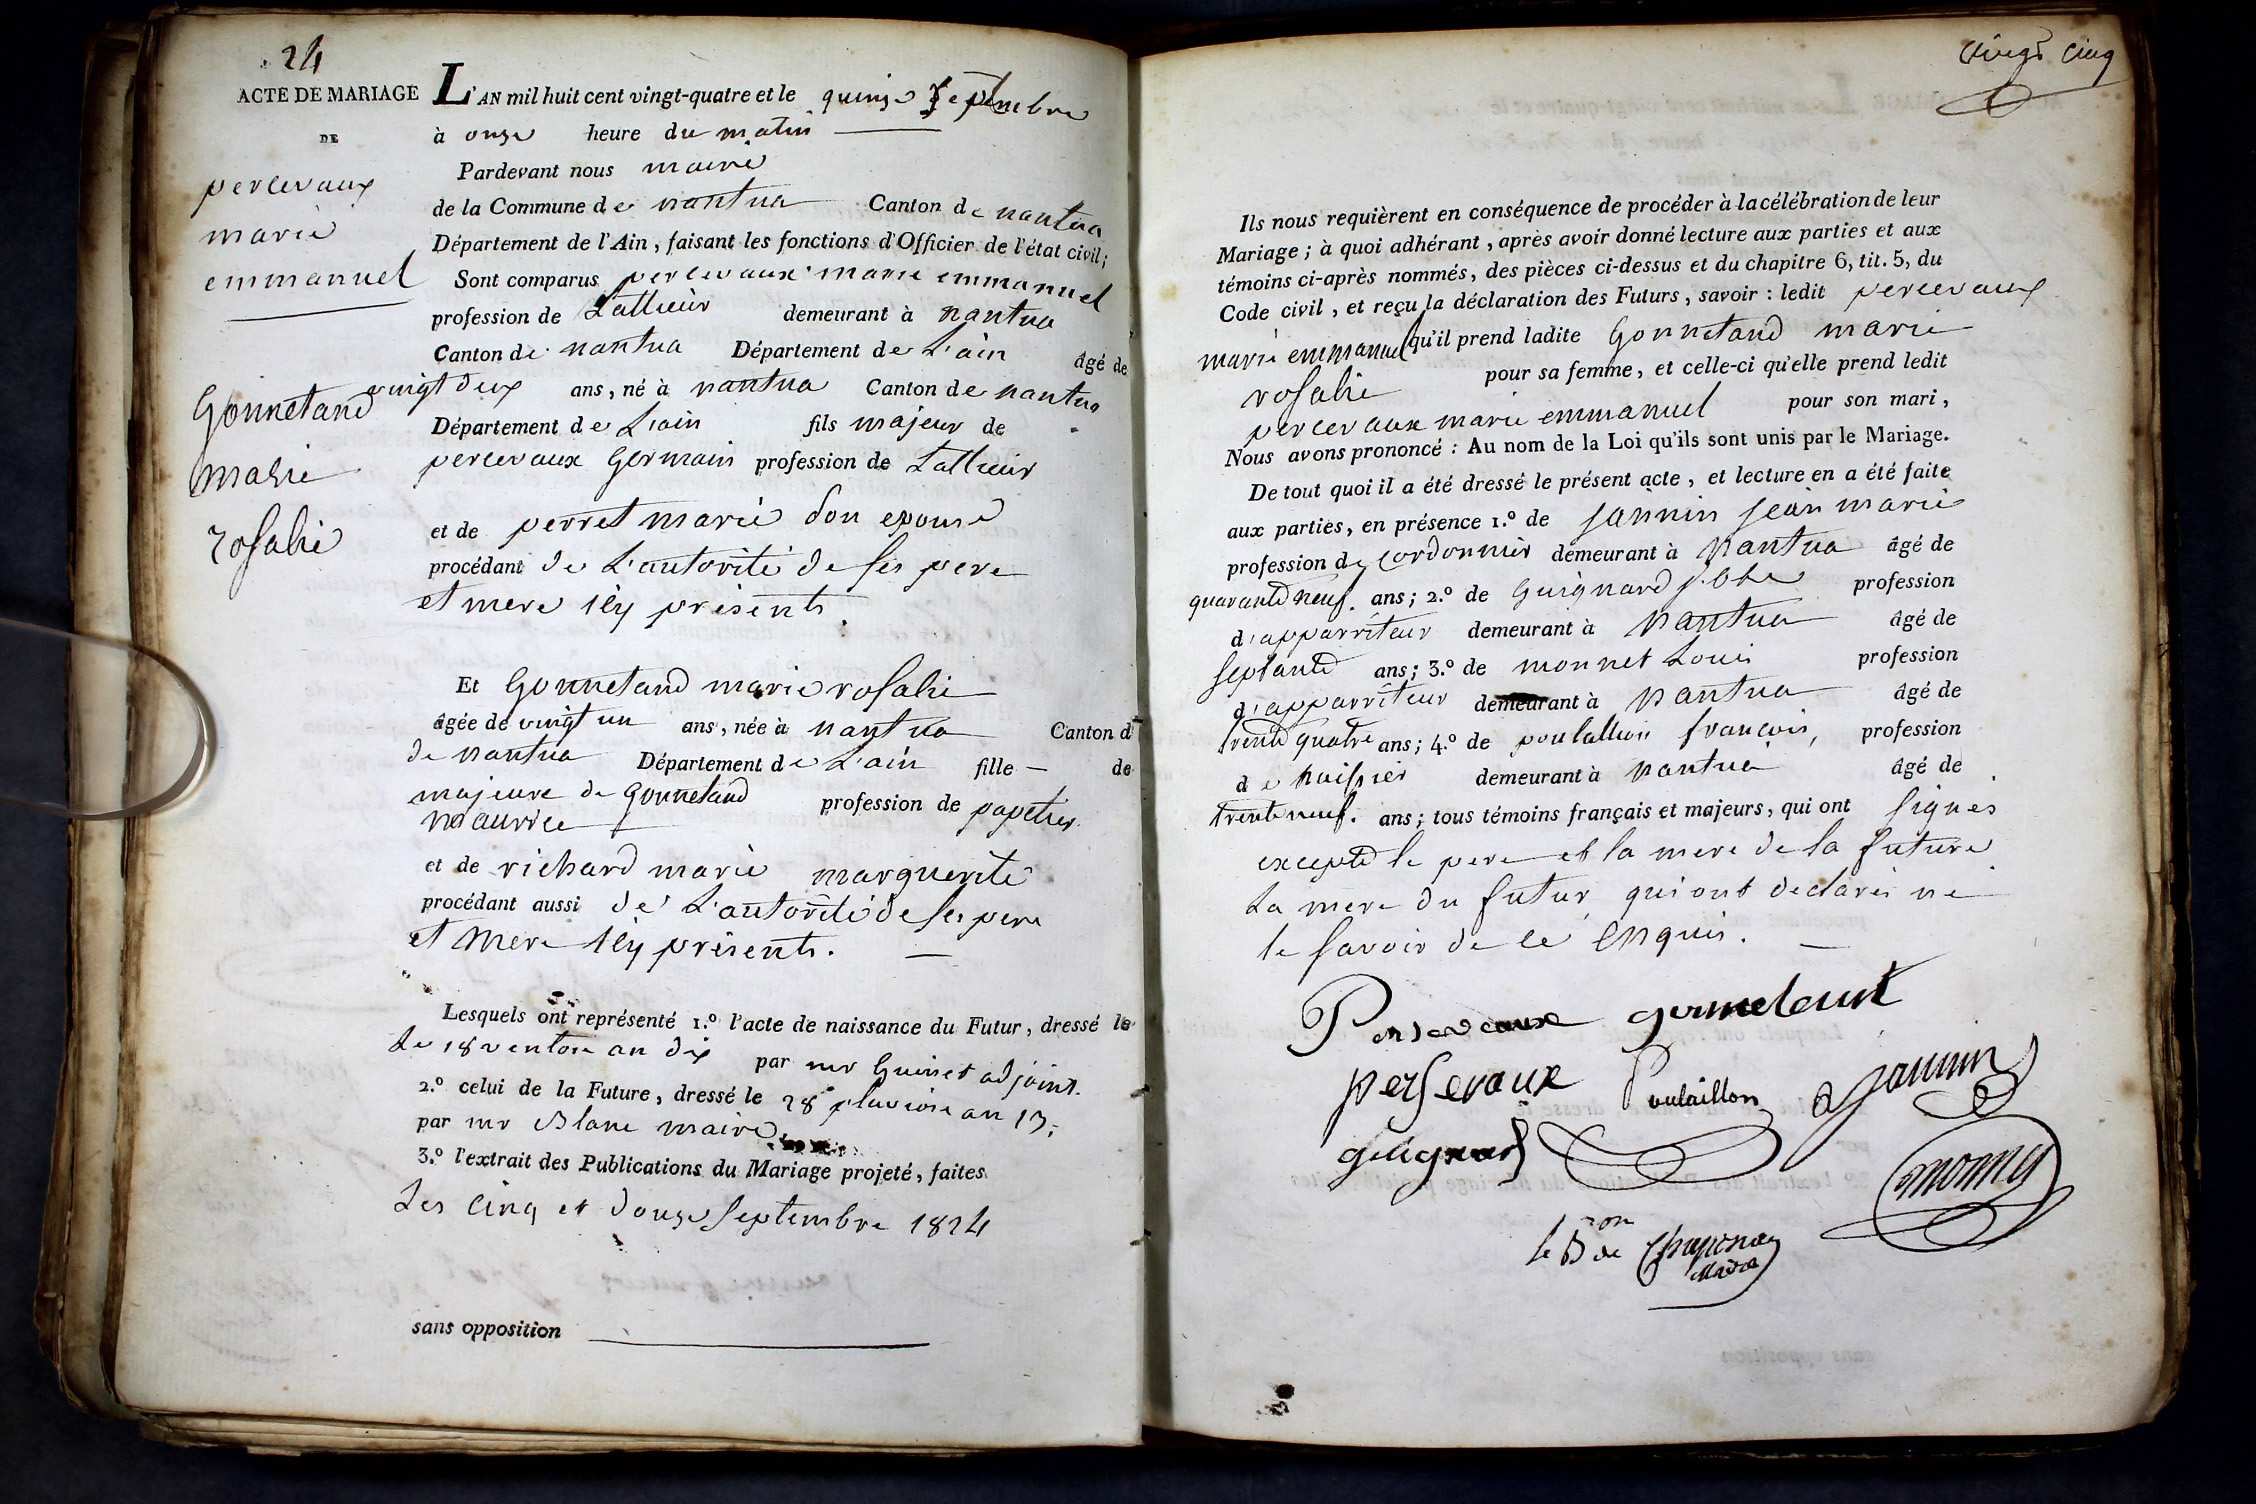 24
ACTE DE MARIAGE
DE
percevaux
marie
emmanuel
Gonnetand
marie
rosalie
L'AN mil huit cent vingt-quatre et le quinze septembre
à onze heure du matin
Pardevant nous maire
de la Commune de nantua Canton de nantua
Département de l'Ain, faisant les fonctions d'Officier de l'état civil;
Sont comparus percevaux marie emmanuel
profession de demeurant à nantua
Canton de nantua Département de L'ain âgé de
vingt deux ans, né à nantua Canton de nantua
Département de L'ain fils majeur de
percevaux Germain profession de
et de perret marie son epouse
procédant de L'autorité de ses pere
et mere icy présents.
Et Gonnetand marie rosalie
âgée de vingt un ans, née à nantua Canton d
de nantua Département de L'ain fille — de
majeure de Gonnetand profession de papetier
maurice
et de richard marie marguerite
procédant aussi de L'autorité de ses pere
et mere icy présents. —
Lesquels ont représenté 1.º l'acte de naissance du Futur, dressé le
Le 18 ventose an dix par mr Guinet adjoint.
2.º celui de la Future, dressé le 28 pluviose an 13;
par mr Blanc maire
3.º l'extrait des Publications du Mariage projeté, faites
Les cinq et douze septembre 1824
sans opposition
vingt cinq
Ils nous requièrent en conséquence de procéder à la célébration de leur
Mariage; à quoi adhérant, après avoir donné lecture aux parties et aux
témoins ci-après nommés, des pièces ci-dessus et du chapitre 6, tit. 5, du
Code civil, et reçu la déclaration des Futurs, savoir : ledit percevaux
marie emmanuel qu'il prend ladite Gonnetand marie
rosalie pour sa femme, et celle-ci qu'elle prend ledit
percevaux marie emmanuel pour son mari,
Nous avons prononcé : Au nom de la Loi qu'ils sont unis par le Mariage.
De tout quoi il a été dressé le présent acte, et lecture en a été faite
aux parties, en présence 1.º de jannin jean marie
profession de cordonnier demeurant à Nantua âgé de
quarante neuf. ans; 2.º de Guignard profession
d'apparriteur demeurant à Nantua âgé de
septante ans; 3.º de monnet Louis profession
d'apparriteur demeurant à Nantua âgé de
trente quatre ans; 4.º de françois, profession
de huissier demeurant à Nantua âgé de
trente neuf. ans; tous témoins français et majeurs, qui ont signés
excepté le pere et la mere de la future
La mere du futur qui ont declarés ne
le savoir de ce enquis. —
gonnetant
perSevaux Poulaillon Jannin
guignard
le Bon de
Maire